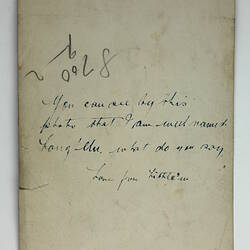 You can see by this
photo that I am well named
"Long'Un, what do you say
Love from